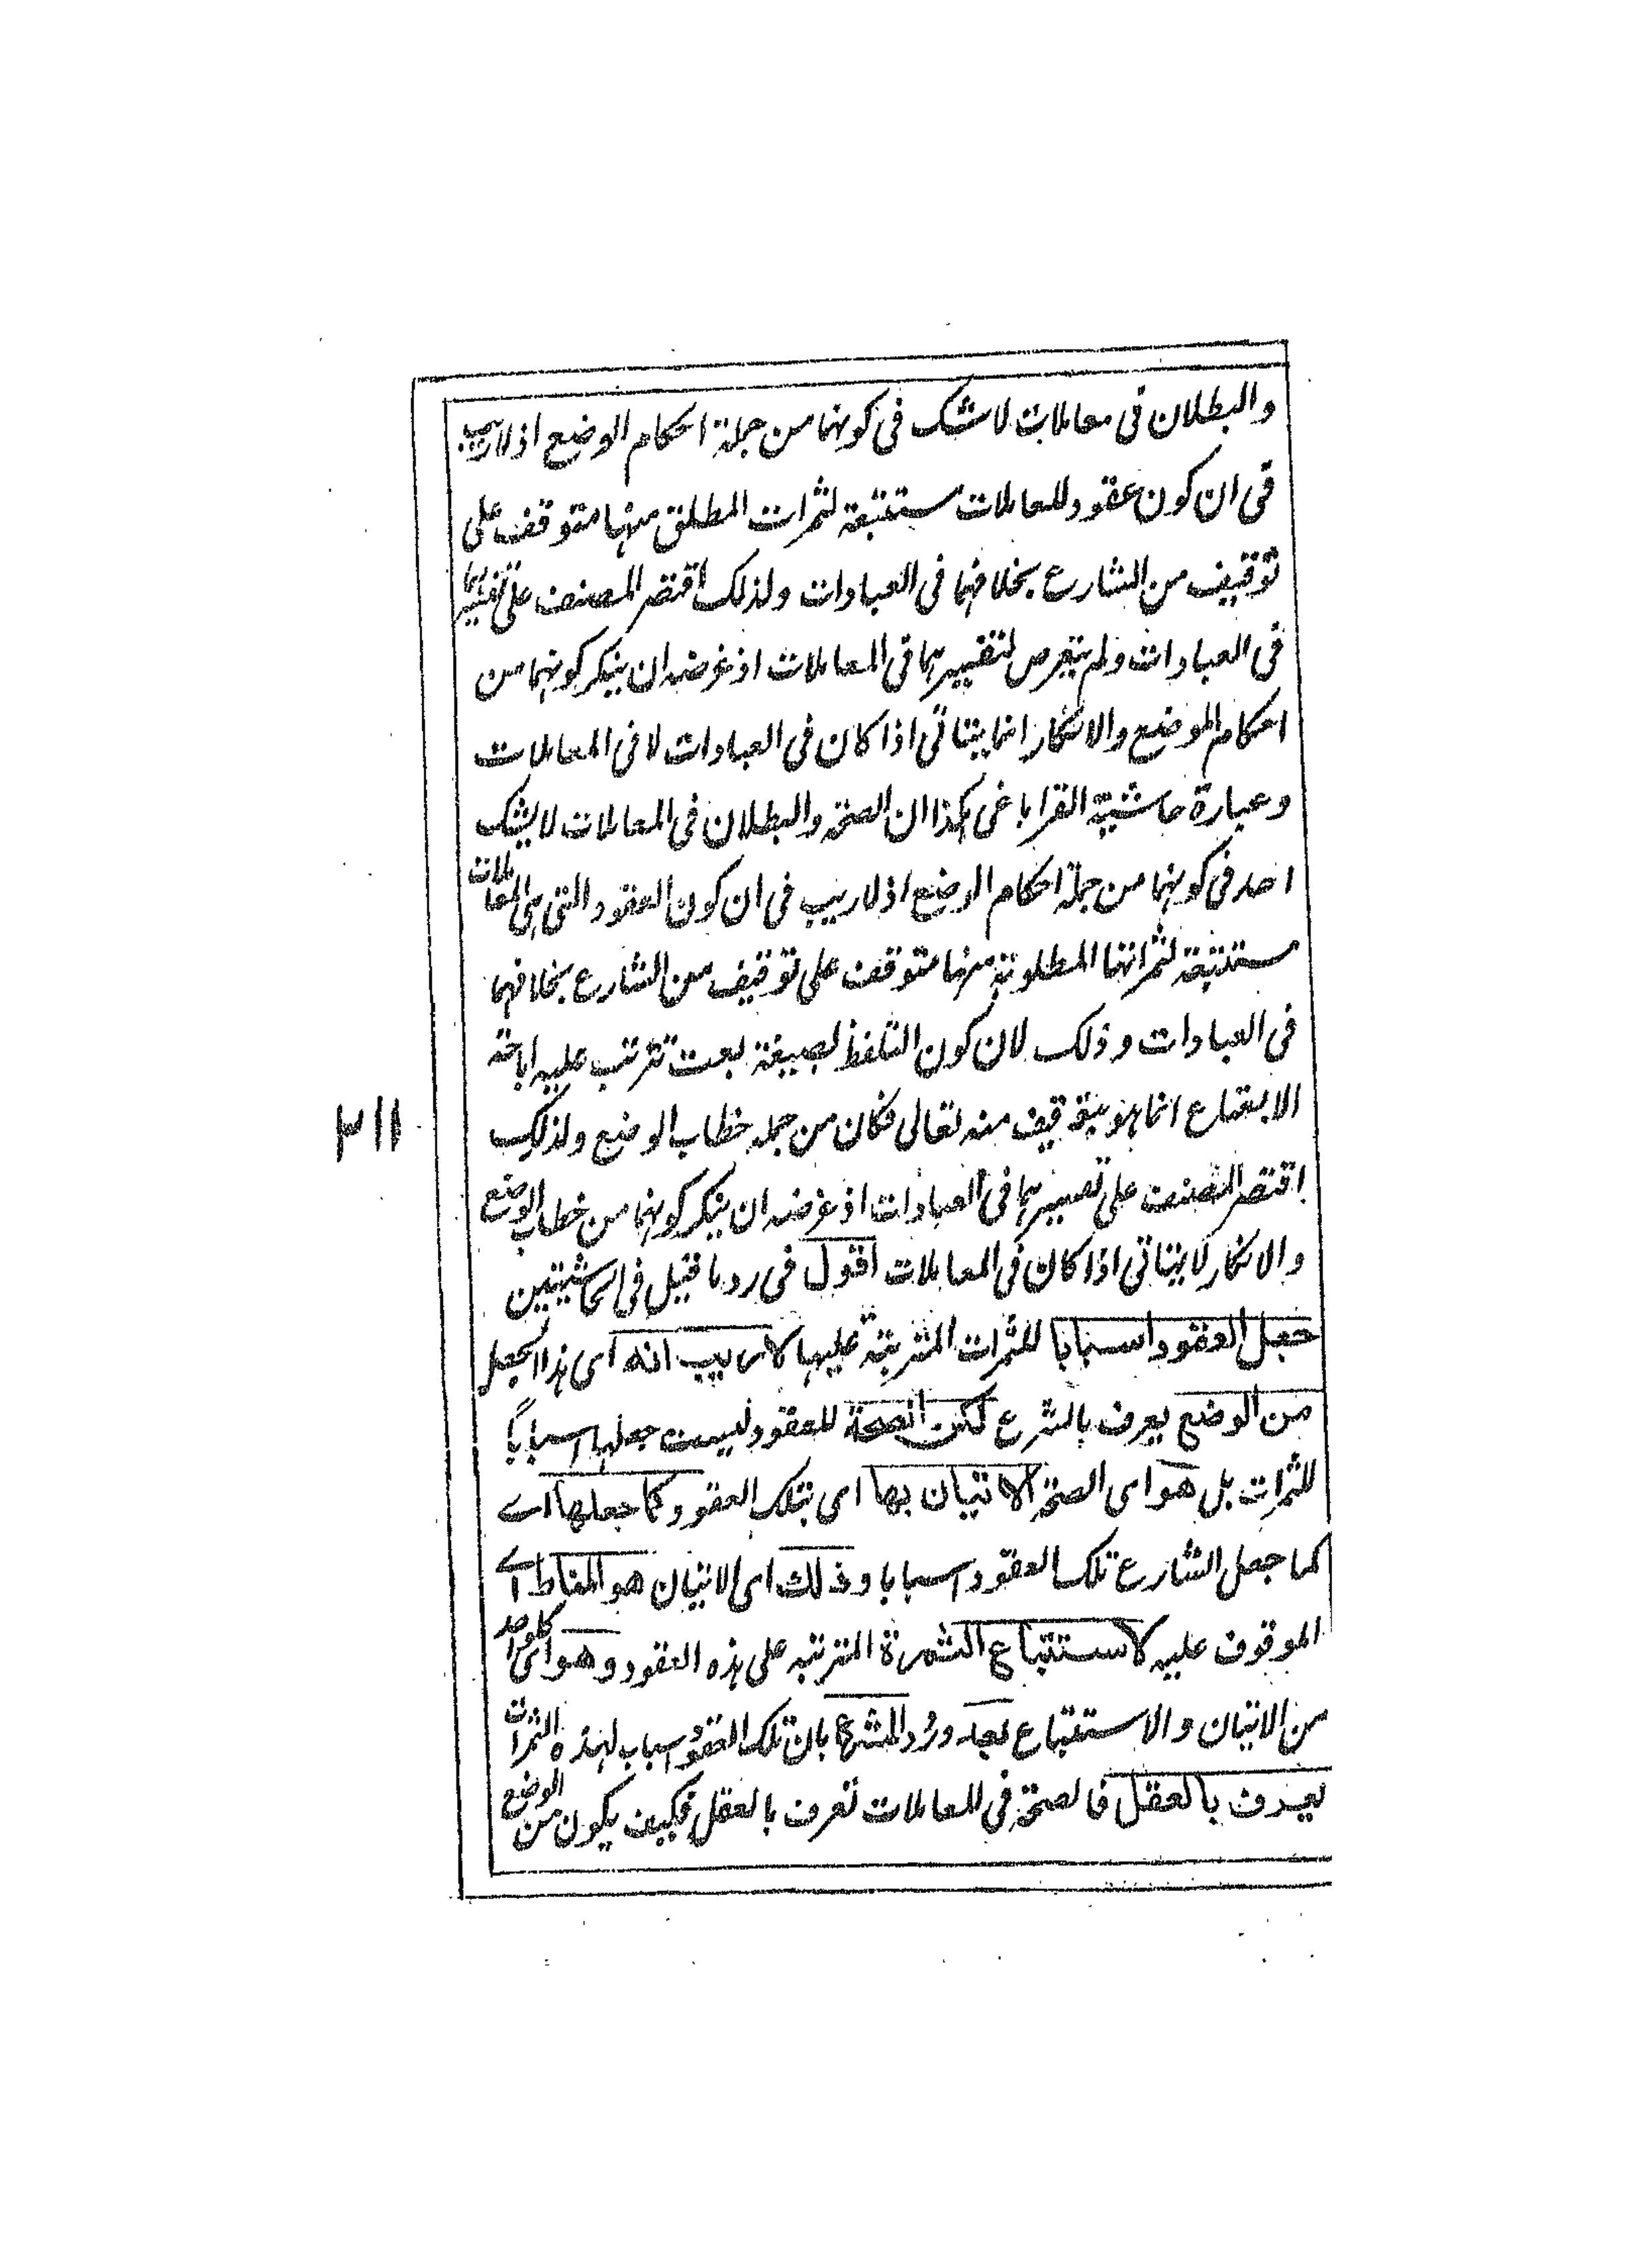 والبطلان فى معاملات لاشك فى كونهما من جملة احكام الوضع اذ لا ريب
فى ان كون عقود المعاملات مستتبعة لثمرات المطلق منها متوقف على
توقيف من الشارع بخلافهما فى العبادات ولذلك اقتصر المصنف على تفسيرهما
فى العبادات ولم يتعرض لتفسيرهما فى المعاملات اذ غرضه ان ينكر كونهما من
احكام الموضع والانكار انما يتاتى اذا كان فى العبادات لا فى المعاملات
وعبارة حاشية القراباغى هكذا ان الصحة والبطلان فى المعاملات لا يشك
احد فى كونهما من جملة احكام الوضع اذ لا ريب فى ان كون العقود التى هى المعاملات
مستتبعة لثمراتها المطلوبة منها متوقف على توقيف من الشارع بخلافهما
فى العبادات وذلك لان كون التلفظ بصيغة بعت تترتب عليه اباحة
الانتفاع انما هو بتوقيف منه تعالى فكان من جمله خطاب الوضع ولذلك
اقتصر المصنف على تفسيرهما فى العبادات اذ غرضه ان ينكر كونهما من خطاب الوضع
والانكار لا يتاتى اذا كان فى المعاملات اقول فى رد ما قيل فى الحاشيتين
جعل العقود اسبابا للثمرات المترتبة عليها لاريب انه اى هذا الجعل
من الوضع يعرف بالشرع لكن الصحة للعقود ليست جعلها اسباباً
للثمرات بل هو اى الصحة الاتيان بها اى بتلك العقود كما جعلها اے
كما جعل الشارع تلك العقود اسبابا وذلك اى الاتيان هو المناط اے
الموقوف عليه لاستتباع الثمرة المترتبه على هذه العقود وهو اى كلواحد
من الاتيان والاستتباع بعد ورود الشرع بان تلك العقود اسباب لهذه الثمرات
يعرف بالعقل فالصحة فى المعاملات تعرف بالعقل فكيف يكون من الوضع
٣١١